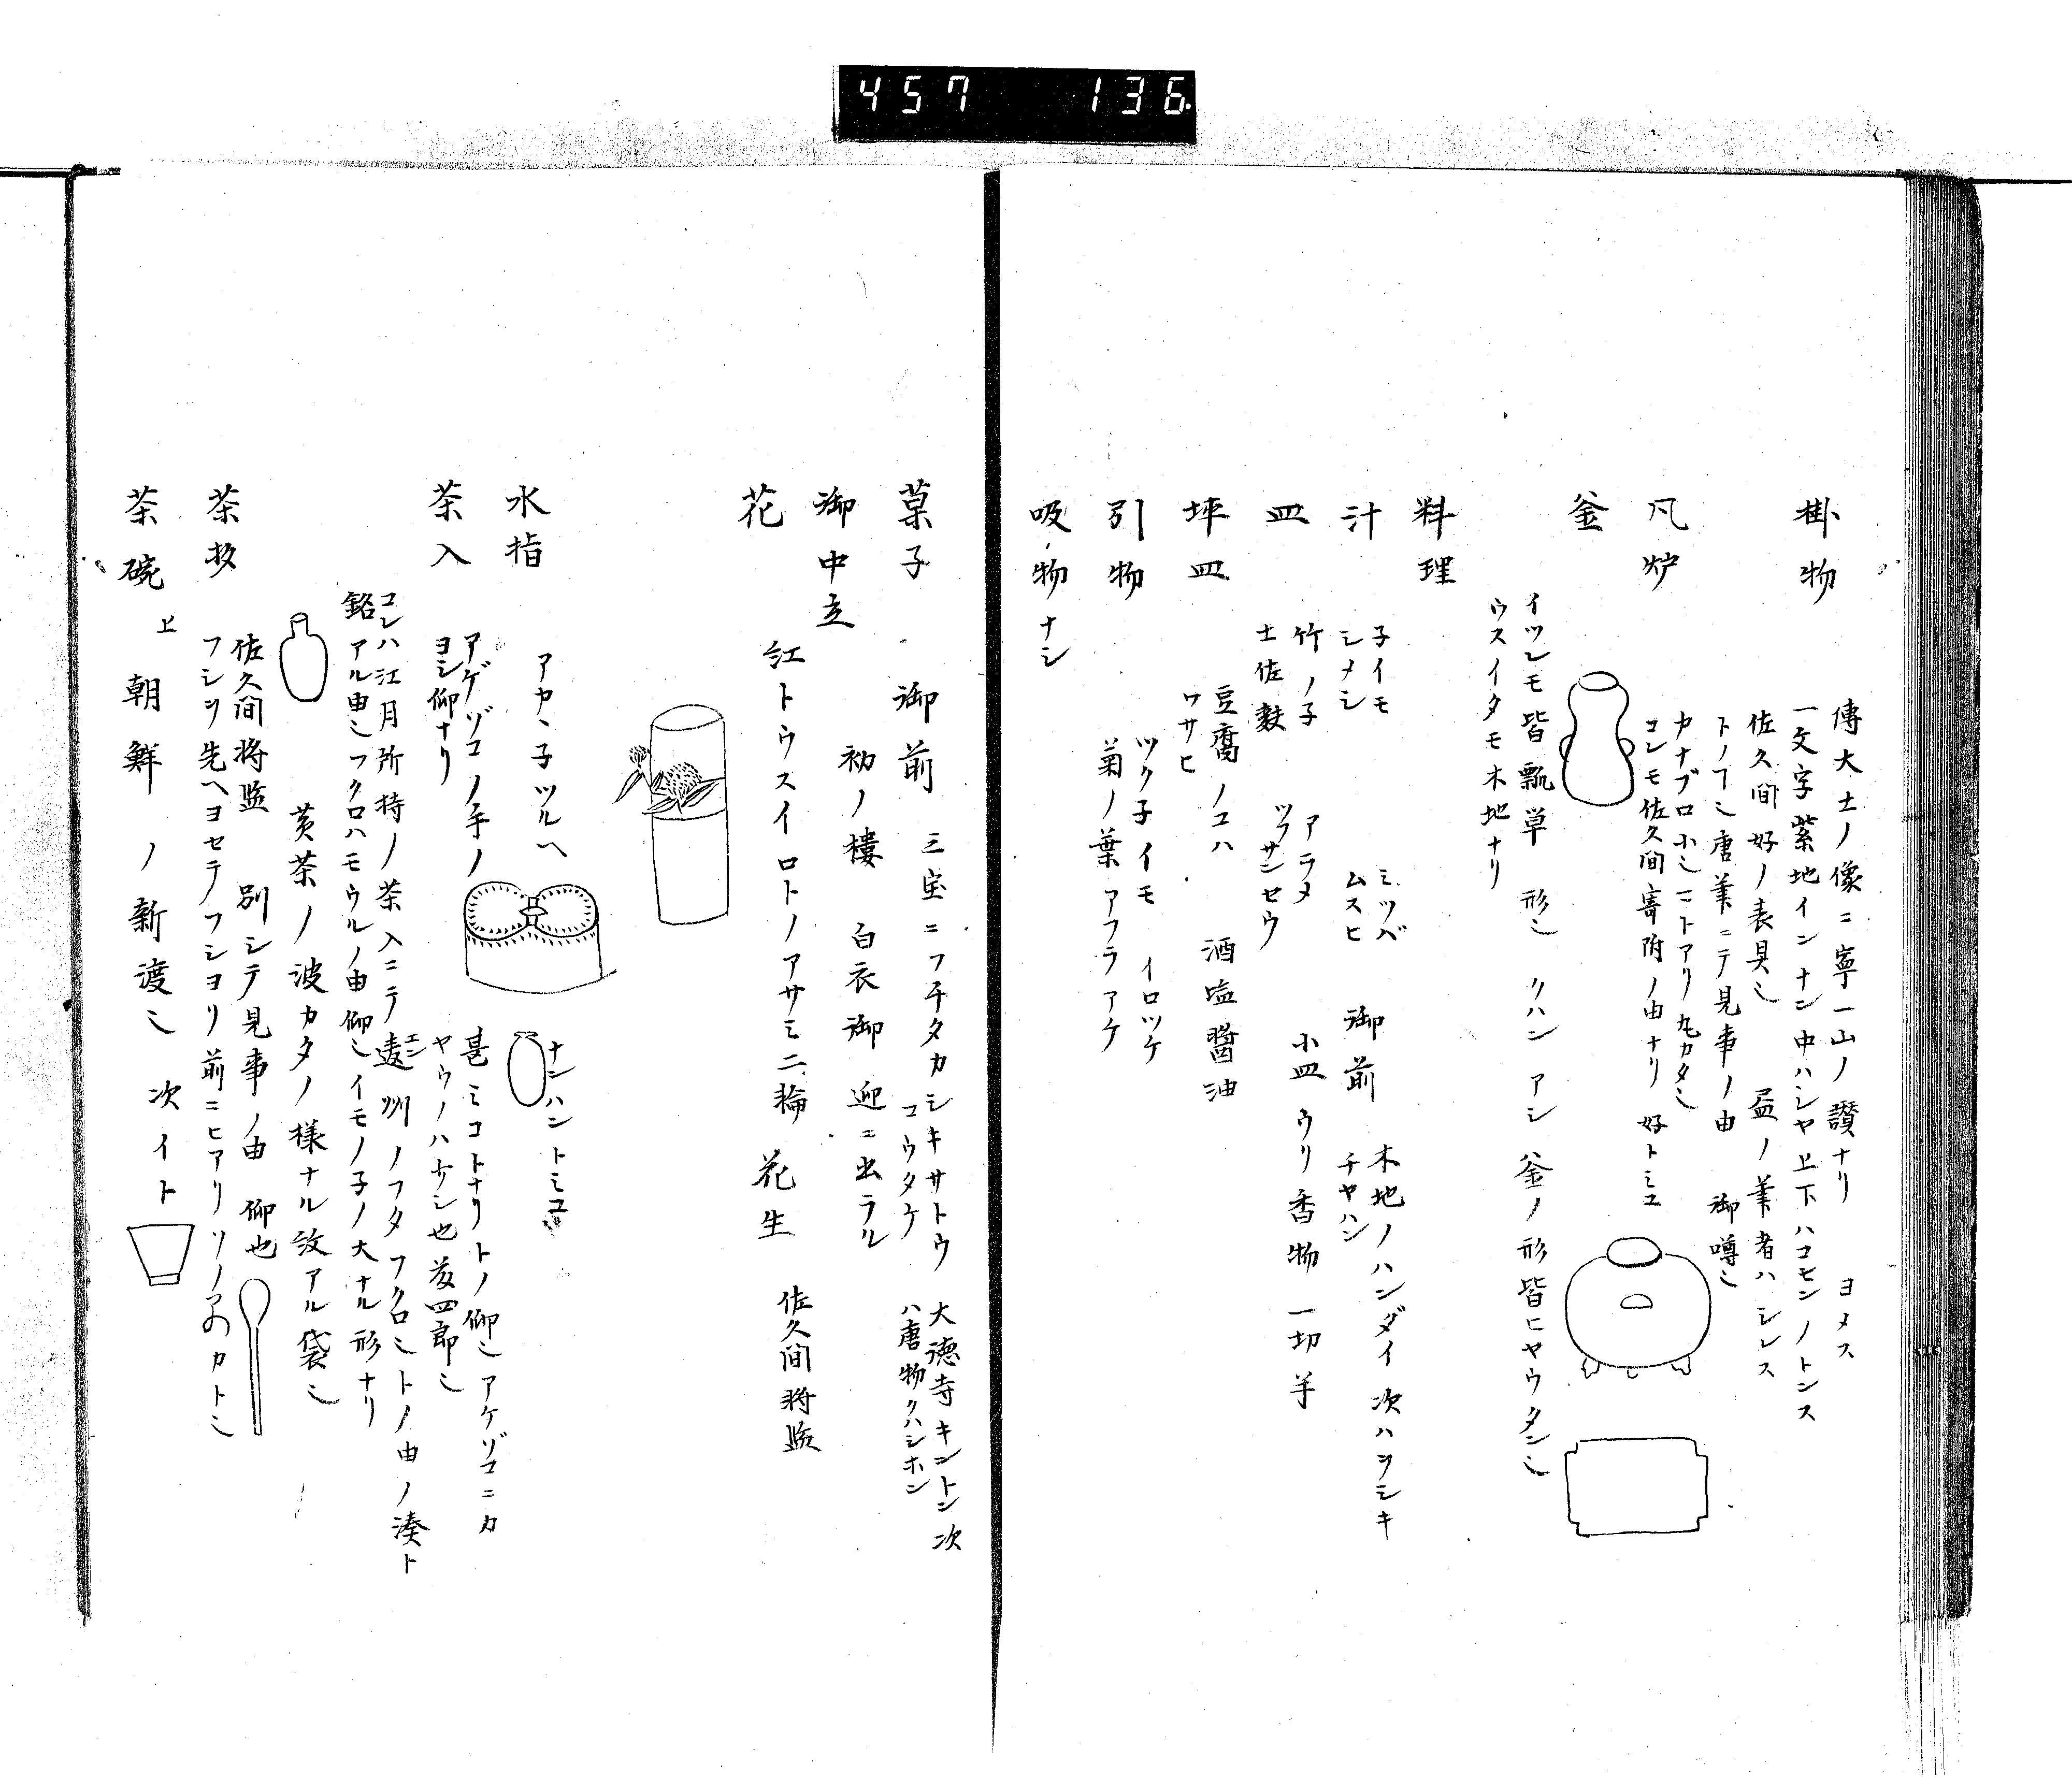 457 136
掛物
傳大士ノ像ニ寧一山ノ讃ナリ ヨメス
一文字紫地インナン中ハシヤ上下ハコモンノトンス
佐久間好ノ表具也 畫ノ筆者ハシレス
トノ丁也唐筆ニテ見事ノ由 御噂也
凡炉
カナブロ小也ニトアリ丸カタ也
コレモ佐久間寄附ノ由ナリ 好トミユ
釜
イツレモ皆瓢草 形也 クハン アシ 釜ノ形皆ヒヤウタン也
ウスイタモ木地ナリ
料理
御前 木地ノハンダイ 次ハヲシキ
汁
子イモ ミツバ
シメシ ムスヒ チヤハン
皿
竹ノ子 アラメ 小皿 ウリ香物一切半
土佐麩 ツフサンセウ
坪皿
豆腐ノコハ 酒塩醤油
ワサヒ
引物
ツク子イモ イロツケ
菊ノ葉 アフラアケ
吸物ナシ
菓子 御前 三宝ニフチタカシキサトウ 大徳寺キントン次
コウタケ ハ唐物クハシホン
御中立 初ノ樓 白衣御迎ニ出ラル
花 紅トウスイロトノアサミ二輪 花生 佐久間将監
水指 アカヽ子ツルヘ ナンハントミユ
アゲゾコノ手ノ 甚ミコトナリトノ仰也アケゾコニカ
ヨシ仰ナリ ヤウノハナシ也 四郎也
茶入
コレハ江月所持ノ茶入ニテ遠州ノフタフクロ也トノ由ノ湊ト
エン
銘アル由也フクロハモウルノ由仰也イモノ子ノ大ナル形ナリ
黄茶ノ波カタノ様ナル紋アル袋也
茶杓
佐久間将監 別シテ見事ノ由 仰也
フシヲ先ヘヨセテフシヨリ前ニヒアリ カト也
茶碗 上 朝鮮ノ新渡也 次イト